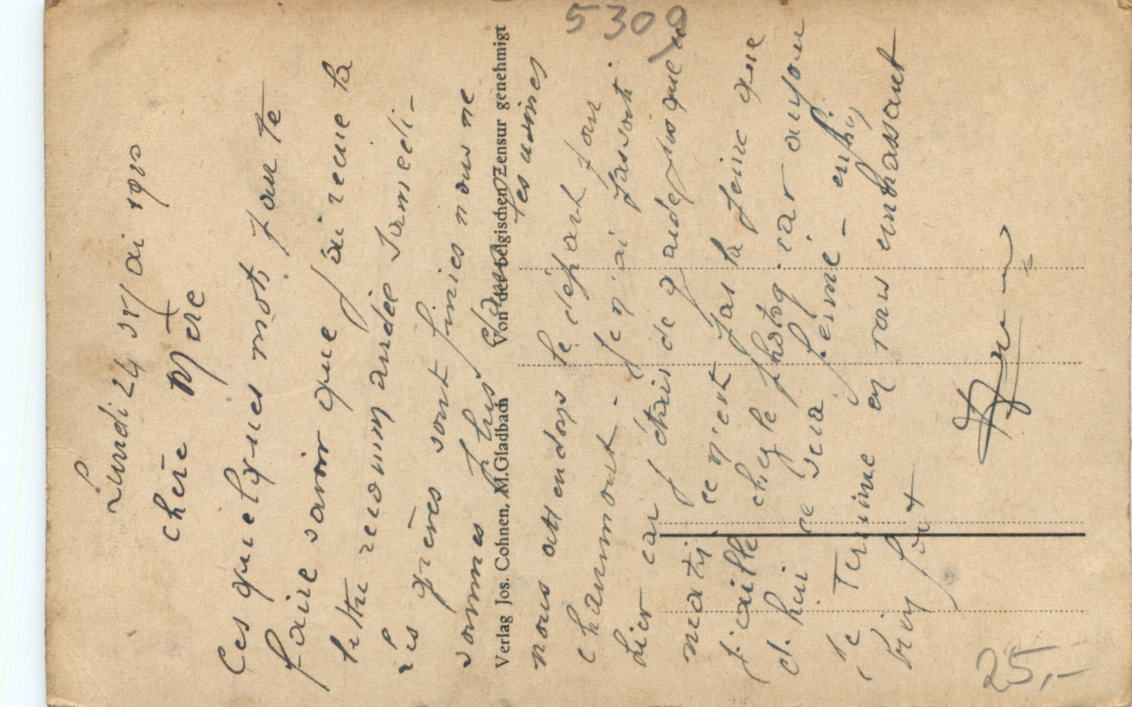 5309
Lundi 24 Mai 1920
chère Mère
Ces quelques mots pour te
faire savoir que j'ai recue ta
lettre recommandée Samedi -
Les grèves sont finies nous ne
sommes plus dans les usines
Verlag Jos. Cohnen, M.Gladbach Von der belgischen Zensur genehmigt
nous attendons le départ pour
chaumont - Je n'ai pas sorti
hier car j'étais de garde jusque
matin ce n'est pas la peine que
j'aille chez le photog. car aujour
d'hui ce sera fermé - enfin
Je Termine en vous embrassant
bien fort
25,-